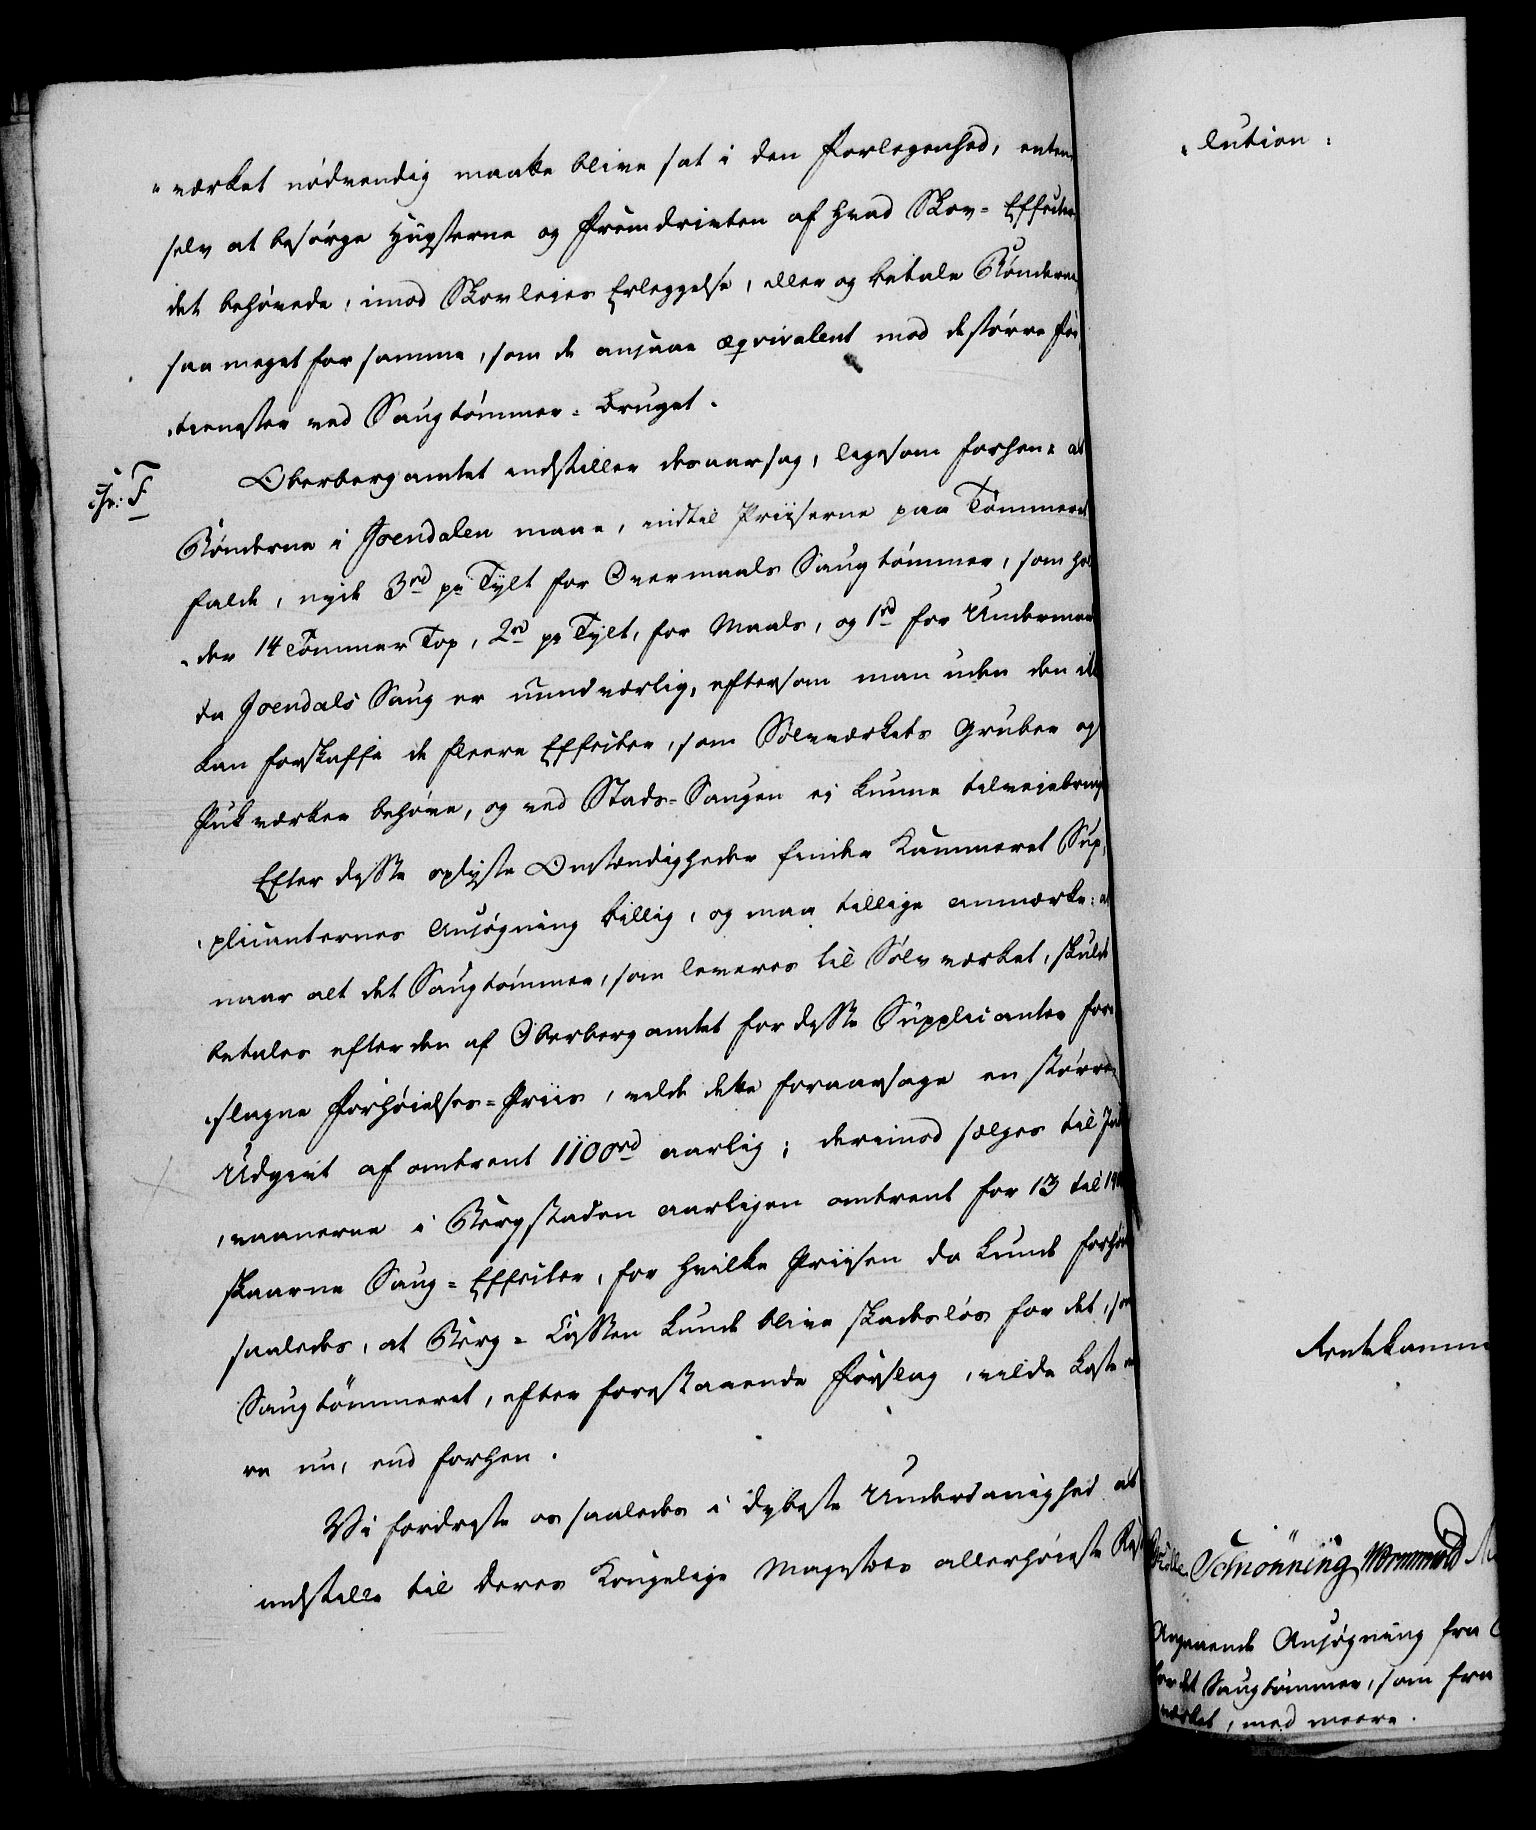 "værket nødvendig maatte blive sat i den Forlegenhed, enten
selv at besørge Hugsterne og Fremdrivten af hvad Skov-Effecter
det behøvede, imod Skovleies Erleggelse, eller og betale Bønderne
saa meget for samme, som de ansaae æqvivalent mod de større For
tienester ved Saugtømmer-Bruget.
Lit: F
Oberbergamtet indstiller desaarsag, ligesom forhen: at
Bønderne i Joendalen maae, indtil Priiserne paa Tømmeret
falde, nyde 3rd pr Tylt for Overmaals Saugtømmer, som hol
der 14 Tommer Top, 2rd pr Tylt, for Maals, og 1rd for Undermaals
da Joendals Saug er uundværlig, eftersom man uden den ikke
kan forskaffe de fleere Effecter, som Sølvværkets Gruber og
Pukværker behøve, og ved Stads-Saugen ej kunne tilvejebringes
Efter disse oplyste Omstændigheder finder Kammeret Sup-
plicanternes Ansøgning billig, og maa tillige anmærke: at
naar alt det Saugtømmer, som leveres til Sølvværket, skulde
betales efter den af Oberbergamtet for disse Supplicanter fore
slagne Forhøielses-Priis, vilde dette foraarsage en større
Udgivt af omtrent 1100rd aarlig; derimod sælges til Ind
vaanerne i Bergstaden aarligen omtrent for 13 til 1400
skaarne Saug-Effecter, for hvilke Priisen da kunde forhøies
saaledes, at Berg-Cassen kunde blive skadesløs for det, som
Saugtømmeret, efter forestaaende Forslag, vilde koste me
re nu, end forhen.
Vi fordriste os saaledes i dybeste Underdanighed at
indstille til Deres Kongelige Majestæts allerhøieste Reso
lution:
Rentekamme
Schiönning Wormskiold
Angaaende Ansøgning fra
for det Saugtømmer, som fra
værket, med meere.